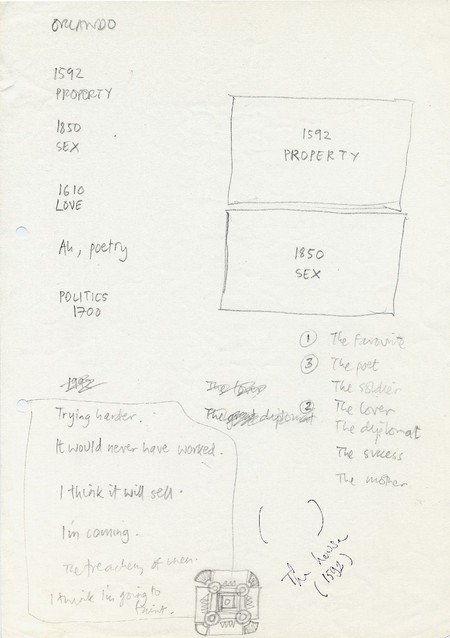 ORLANDO
1592
PROPERTY
1850
SEX
1610
LOVE
Ah, poetry
POLITICS
1700
1592
PROPERTY
1850
SEX
① The Favourite
③ The poet
The soldier
② The lover
The diplomat
The success
The mother
The lover
The great diplomat
Trying harder.
It would never have worked.
I think it will sell.
I'm coming.
The treachery of men.
I think I'm going to
faint.
The house
(1592)